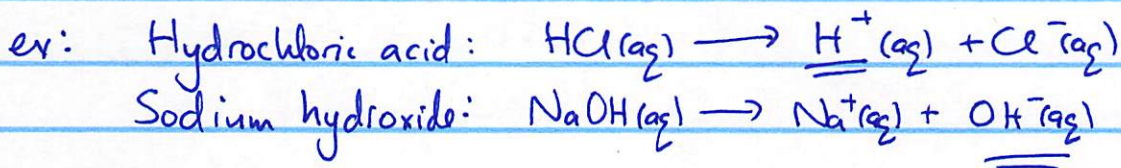 ex: Hydrochloric acid: HCl(aq) ⟶ H⁺(aq) + Cl⁻(aq)
Sodium hydroxide: NaOH(aq) ⟶ Na⁺(aq) + OH⁻(aq)